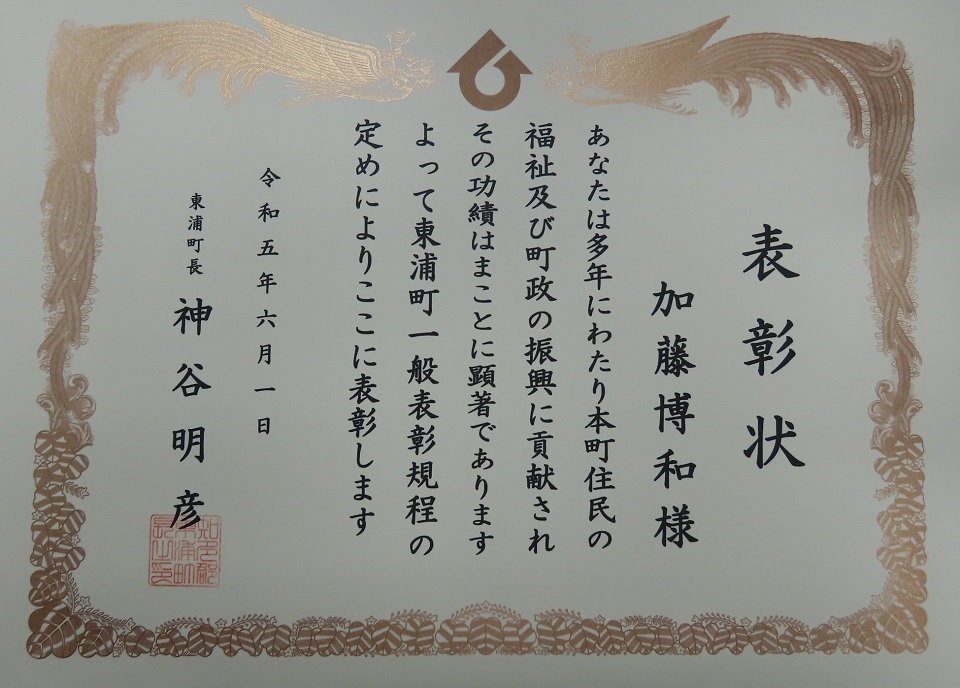 表彰状
加藤博和様
あなたは多年にわたり本町住民の
福祉及び町政の振興に貢献され
その功績はまことに顕著であります
よって東浦町一般表彰規程の
定めによりここに表彰します
令和五年六月一日
東浦町長 神谷明彦
知多郡
東浦町
長之印